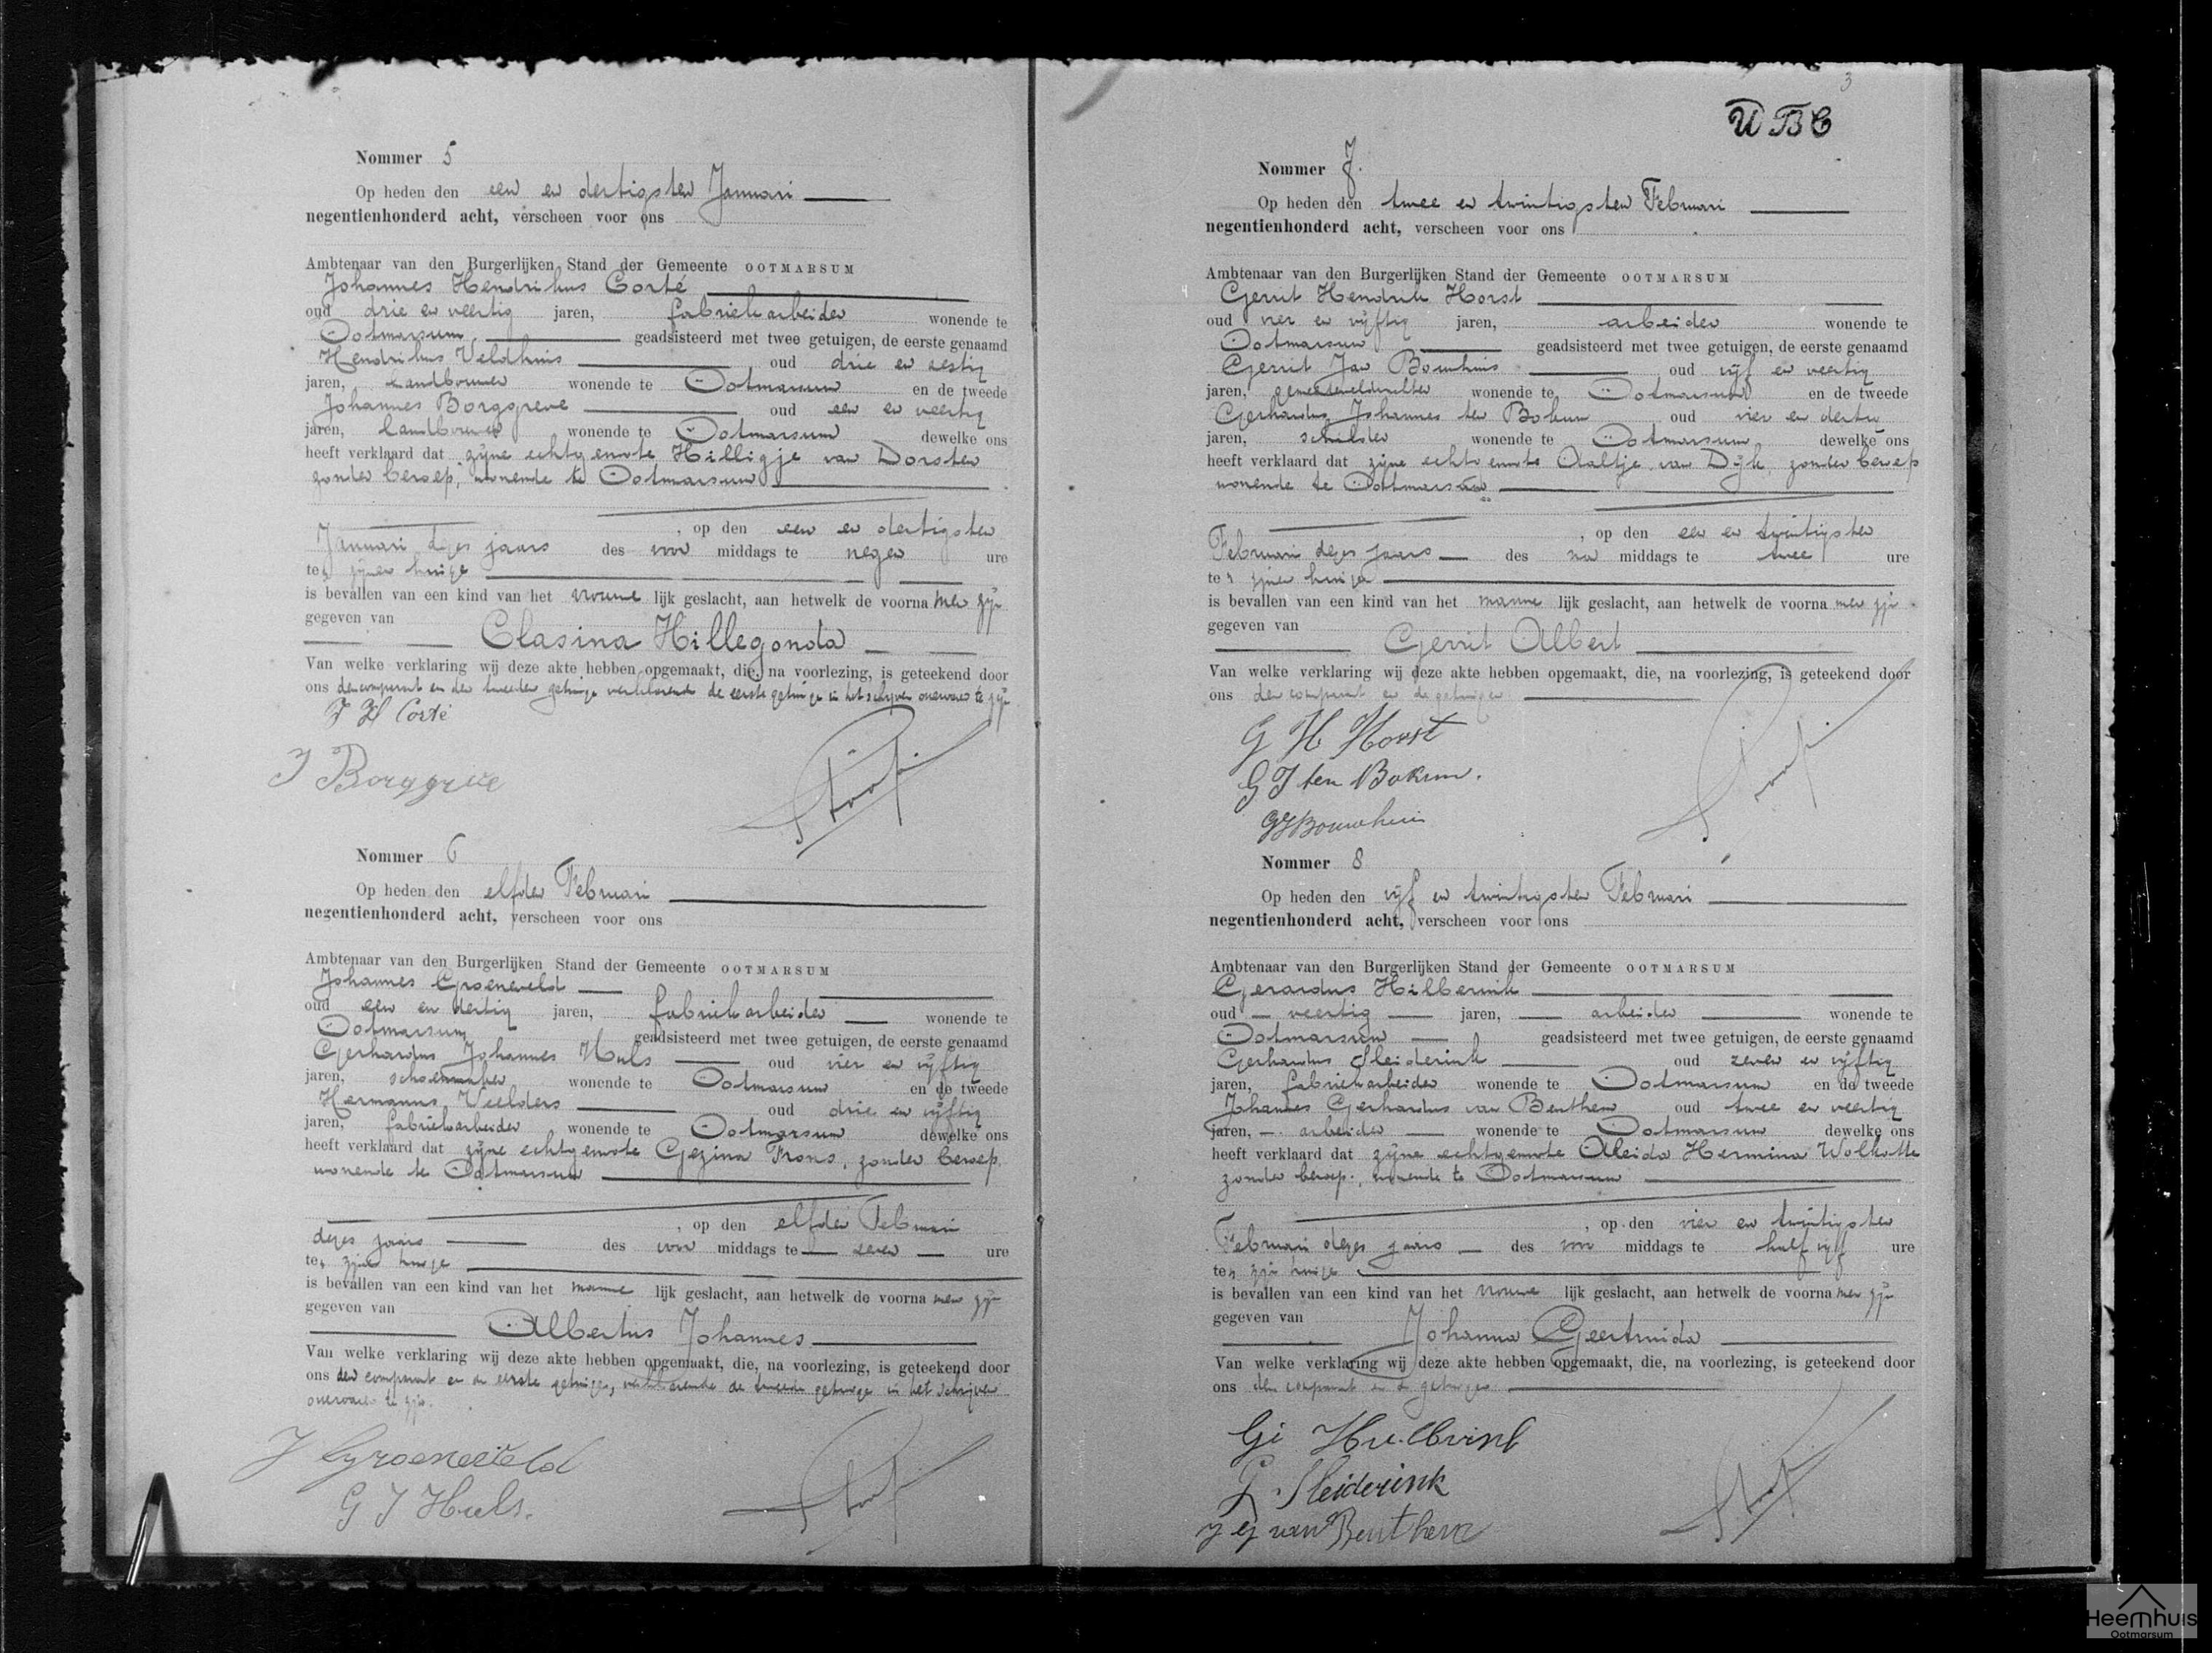 Nommer 5
Op heden den een en dertigsten Januari
negentienhonderd acht, verscheen voor ons
Ambtenaar van den Burgerlijken Stand der Gemeente OOTMARSUM
Johannes Hendrikus Corté
oud drie en veertig jaren, fabriekarbeider wonende te
Ootmarsum geadsisteerd met twee getuigen, de eerste genaamd
Hendrikus Veldhuis oud drie en zestig
jaren, landbouwer wonende te Ootmarsum en de tweede
Johannes Borggreve oud een en veertig
jaren, landbouwer wonende te Ootmarsum dewelke ons
heeft verklaard dat zijne echtgenoote Hilligje van Dorsten
zonder beroep, wonende te Ootmarsum
, op den een en dertigsten
Januari dezes jaars des voor middags te negen ure
te zijnen huize
is bevallen van een kind van het vrouwe lijk geslacht, aan hetwelk de voorna men zijn
gegeven van
Clasina Hillegonda
Van welke verklaring wij deze akte hebben opgemaakt, die, na voorlezing, is geteekend door
ons den comparant en den tweeden getuige verklarende de eerste getuige in het schrijven onervaren te zijn
J H Corté
J Borggreve
Nommer 6
Op heden den elfden Februari
negentienhonderd acht, verscheen voor ons
Ambtenaar van den Burgerlijken Stand der Gemeente OOTMARSUM
Johannes Groeneveld
oud een en dertig jaren, fabriekarbeider wonende te
Ootmarsum geadsisteerd met twee getuigen, de eerste genaamd
Gerhardus Johannes Huls oud vier en vijftig
jaren, schoenmaker wonende te Ootmarsum en de tweede
Hermannus Veelders oud drie en vijftig
jaren, fabriekarbeider wonende te Ootmarsum dewelke ons
heeft verklaard dat zijne echtgenoote Gezina Frons, zonder beroep,
wonende te Ootmarsum
, op den elfden Februari
dezes jaars des voor middags te ure
te zijnen huize
is bevallen van een kind van het manne lijk geslacht, aan hetwelk de voorna men zijn
gegeven van
Albertus Johannes
Van welke verklaring wij deze akte hebben opgemaakt, die, na voorlezing, is geteekend door
ons den comparant en de eerste getuige, verklarende de tweede getuige in het schrijven
onervaren te zijn.
J Groeneveld
G J Huls.
3
UBC
Nommer 7.
Op heden den twee en twintigsten Februari
negentienhonderd acht, verscheen voor ons
Ambtenaar van den Burgerlijken Stand der Gemeente OOTMARSUM
Gerrit Hendrik Horst
oud vier en vijftig jaren, arbeider wonende te
Ootmarsum geadsisteerd met twee getuigen, de eerste genaamd
Gerrit Jan Bouwhuis oud vijf en veertig
jaren, gemeenteveldwachter wonende te Ootmarsum en de tweede
Gerhardus Johannes ten Bokum oud vier en dertig
jaren, schilder wonende te Ootmarsum dewelke ons
heeft verklaard dat zijne echtgenoote Aaltje van Dijk, zonder beroep
wonende te Ootmarsum
, op den een en twintigsten
Februari dezes jaars des na middags te twee ure
te zijnen huize
is bevallen van een kind van het manne lijk geslacht, aan hetwelk de voorna men zijn
gegeven van
Gerrit Albert
Van welke verklaring wij deze akte hebben opgemaakt, die, na voorlezing, is geteekend door
ons den comparant en de getuigen
G H Horst
G J ten Bokum.
GJ Bouwhuis
Nommer 8
Op heden den vijf en twintigsten Februari
negentienhonderd acht, verscheen voor ons
Ambtenaar van den Burgerlijken Stand der Gemeente OOTMARSUM
Gerardus Hilberink
oud veertig jaren, arbeider wonende te
Ootmarsum geadsisteerd met twee getuigen, de eerste genaamd
Gerhardus Sleiderink oud zeven en vijftig
jaren, fabriekarbeider wonende te Ootmarsum en de tweede
Johannes Gerhardus van Benthem oud twee en veertig
jaren, arbeider wonende te Ootmarsum dewelke ons
heeft verklaard dat zijne echtgenoote Aleida Hermina Wolkotte
zonder beroep, wonende te Ootmarsum
, op den vier en twintigsten
Februari dezes jaars des voor middags te half vijf ure
te zijnen huize
is bevallen van een kind van het vrouwe lijk geslacht, aan hetwelk de voorna men zijn
gegeven van
Johanna Geertruida
Van welke verklaring wij deze akte hebben opgemaakt, die, na voorlezing, is geteekend door
ons den comparant en de getuigen
G Sleiderink
J G van Benthem
Heemhuis
Ootmarsum